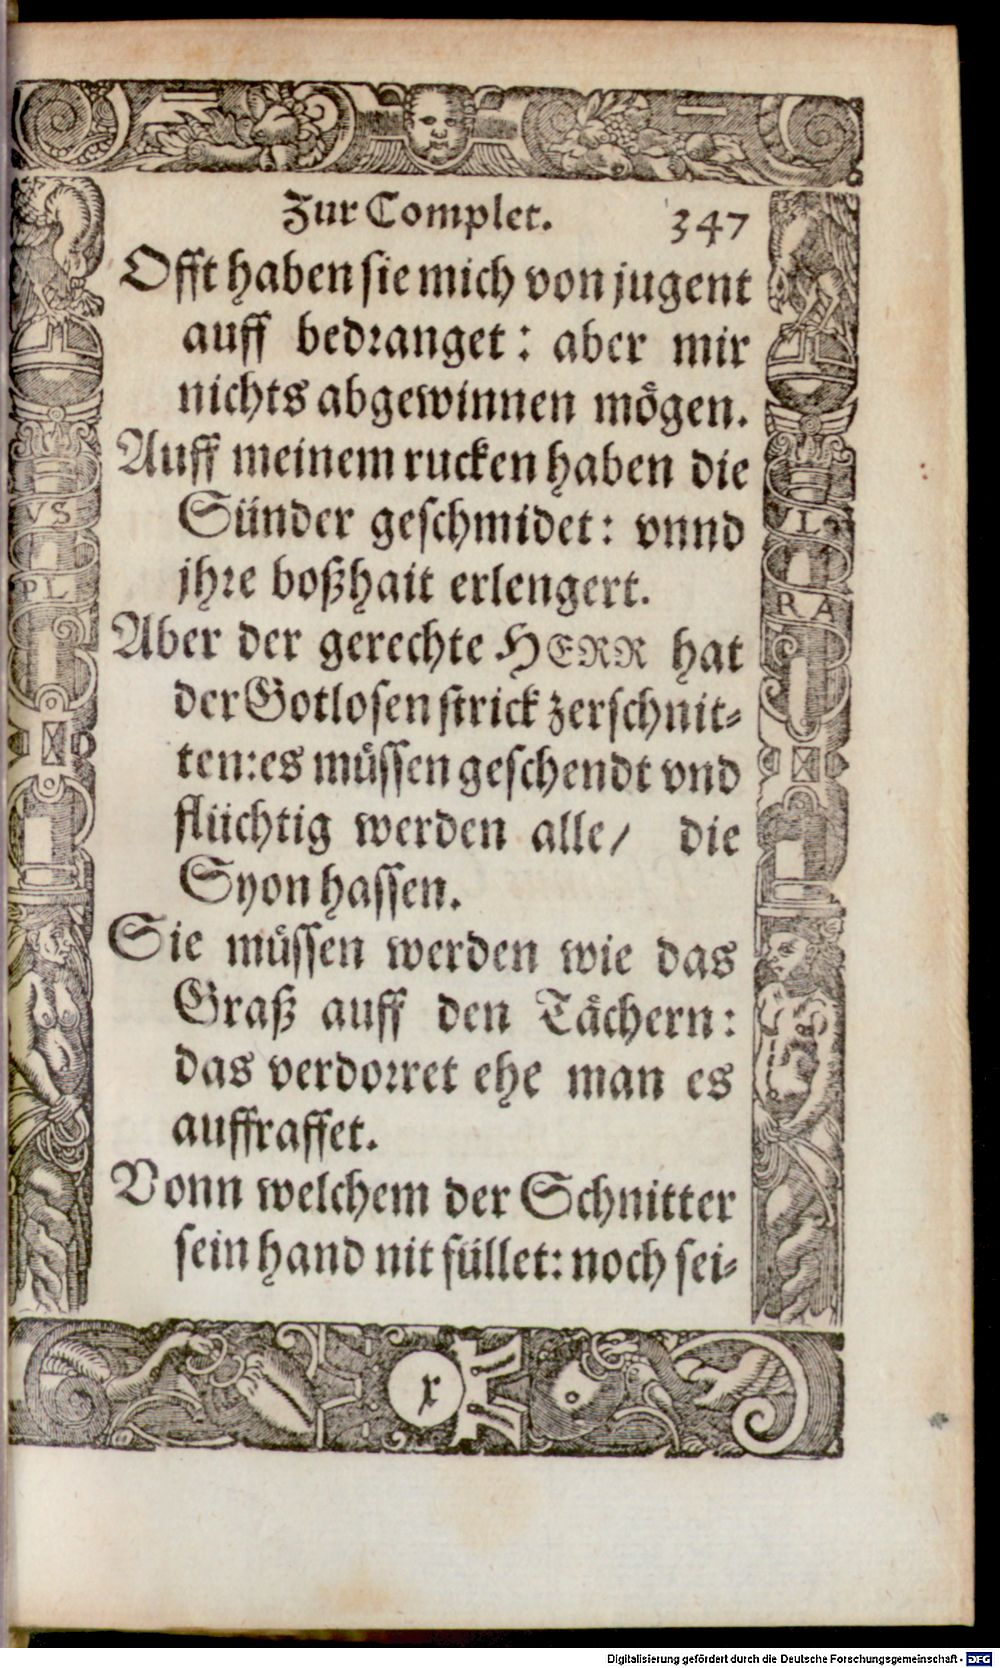 Zur Complet. 347
Offt haben sie mich von jugent
auff bedranget: aber mir
nichts abgewinnen mögen.
Auff meinem rucken haben die
Sünder geschmidet: vnnd
jhre boßhait erlengert.
Aber der gerechte HERR hat
der Gotlosen strick zerschnit-
ten: es müssen geschendt vnd
flüchtig werden alle/ die
Syon hassen.
Sie müssen werden wie das
Graß auff den Tächern:
das verdorret ehe man es
auffraffet.
Vonn welchem der Schnitter
sein hand nit füllet: noch sei-
VS
PL
VL
RA
x
Digitalisierung gefördert durch die Deutsche Forschungsgemeinschaft - DFG